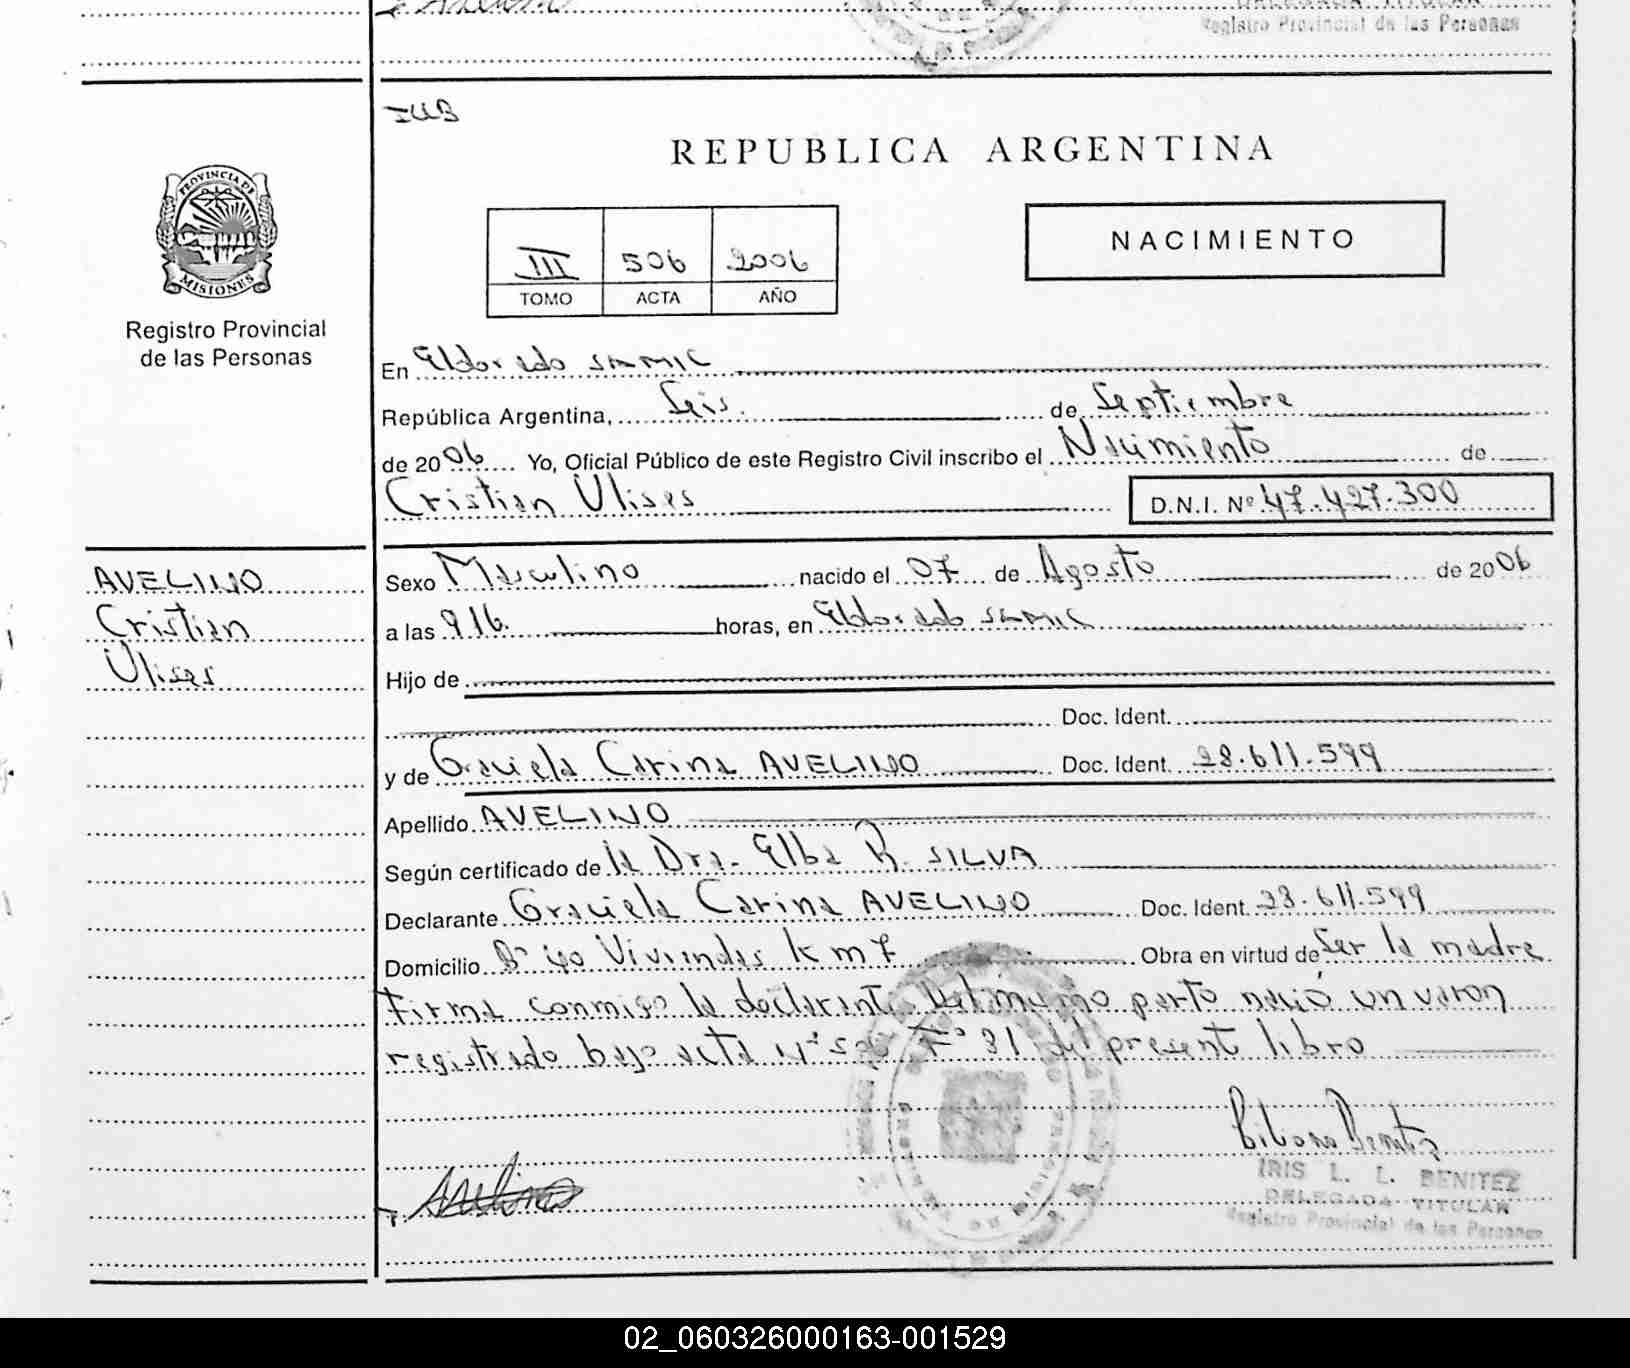 Registro Provincial de las Personas
IUB
REPUBLICA ARGENTINA
PROVINCIA DE
MISIONES
Registro Provincial
de las Personas
III 506 2006
TOMO ACTA AÑO
NACIMIENTO
En Eldorado SAMIC
República Argentina, Seis. de Septiembre
de 2006 Yo, Oficial Público de este Registro Civil inscribo el Nacimiento de
Cristian Ulises D.N.I. Nº 47.427.300
AVELINO
Cristian
Ulises
Sexo Masculino nacido el 07 de Agosto de 2006
a las 916. horas, en Eldorado SAMIC
Hijo de
Doc. Ident.
y de Graciela Carina AVELINO Doc. Ident. 28.611.599
Apellido AVELINO
Según certificado de la Dra. Elba R. SILVA
Declarante Graciela Carina AVELINO Doc. Ident. 28.611.599
Domicilio Bº 40 Viviendas km 7 Obra en virtud de Ser la madre
Firma conmigo la declarante Del mismo parto nació un varon
registrado bajo acta Nº Fº 31 del present libro
IRIS L. L. BENITEZ
DELEGADA TITULAR
Registro Provincial de las Personas
02_060326000163-001529